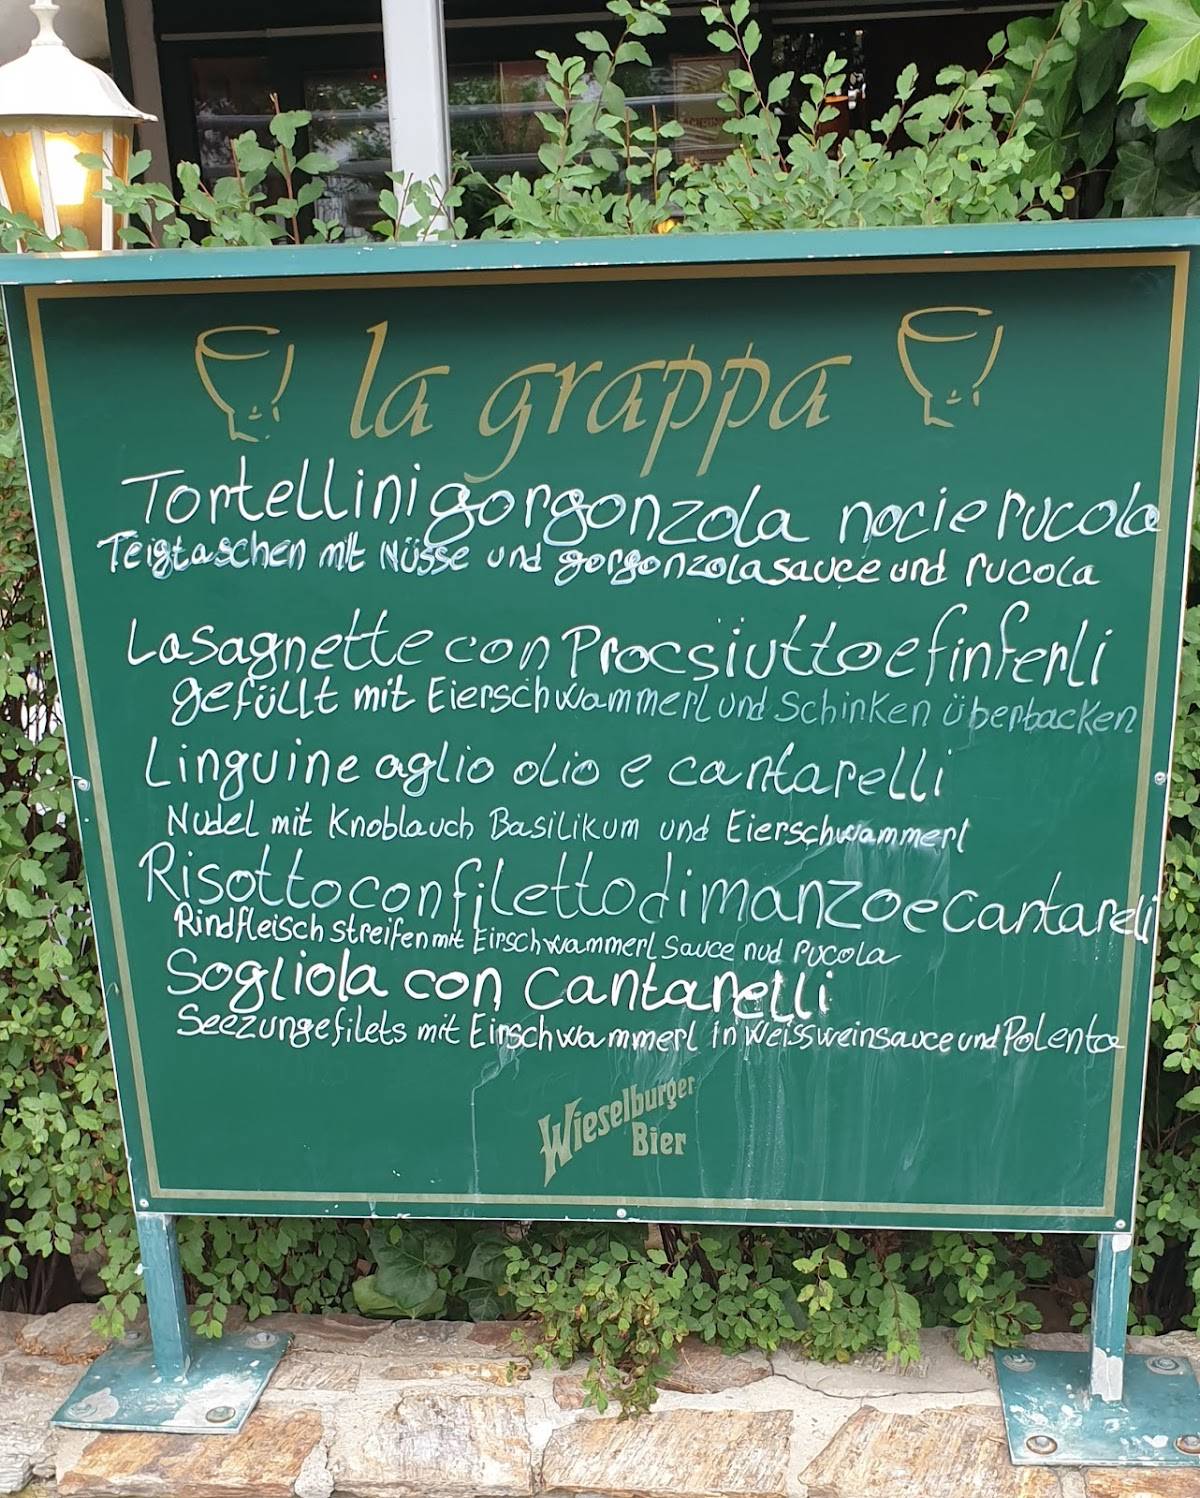 la grappa
Tortellini gorgonzola nocie rucola
Teigtaschen mit Nüsse und gorgonzolasauce und rucola
Lasagnette con Procsiutto e finferli
gefüllt mit Eierschwammerl und Schinken überbacken
Linguine aglio olio e cantarelli
Nudel mit Knoblauch Basilikum und Eierschwammerl
Risotto con filetto di manzo e Cantareli
Rindfleisch streifen mit Eirschwammerl Sauce nud rucola
Sogliola con Cantarelli
Seezungefilets mit Eirschwammerl in Weissweinsauce und Polenta
Wieselburger
Bier